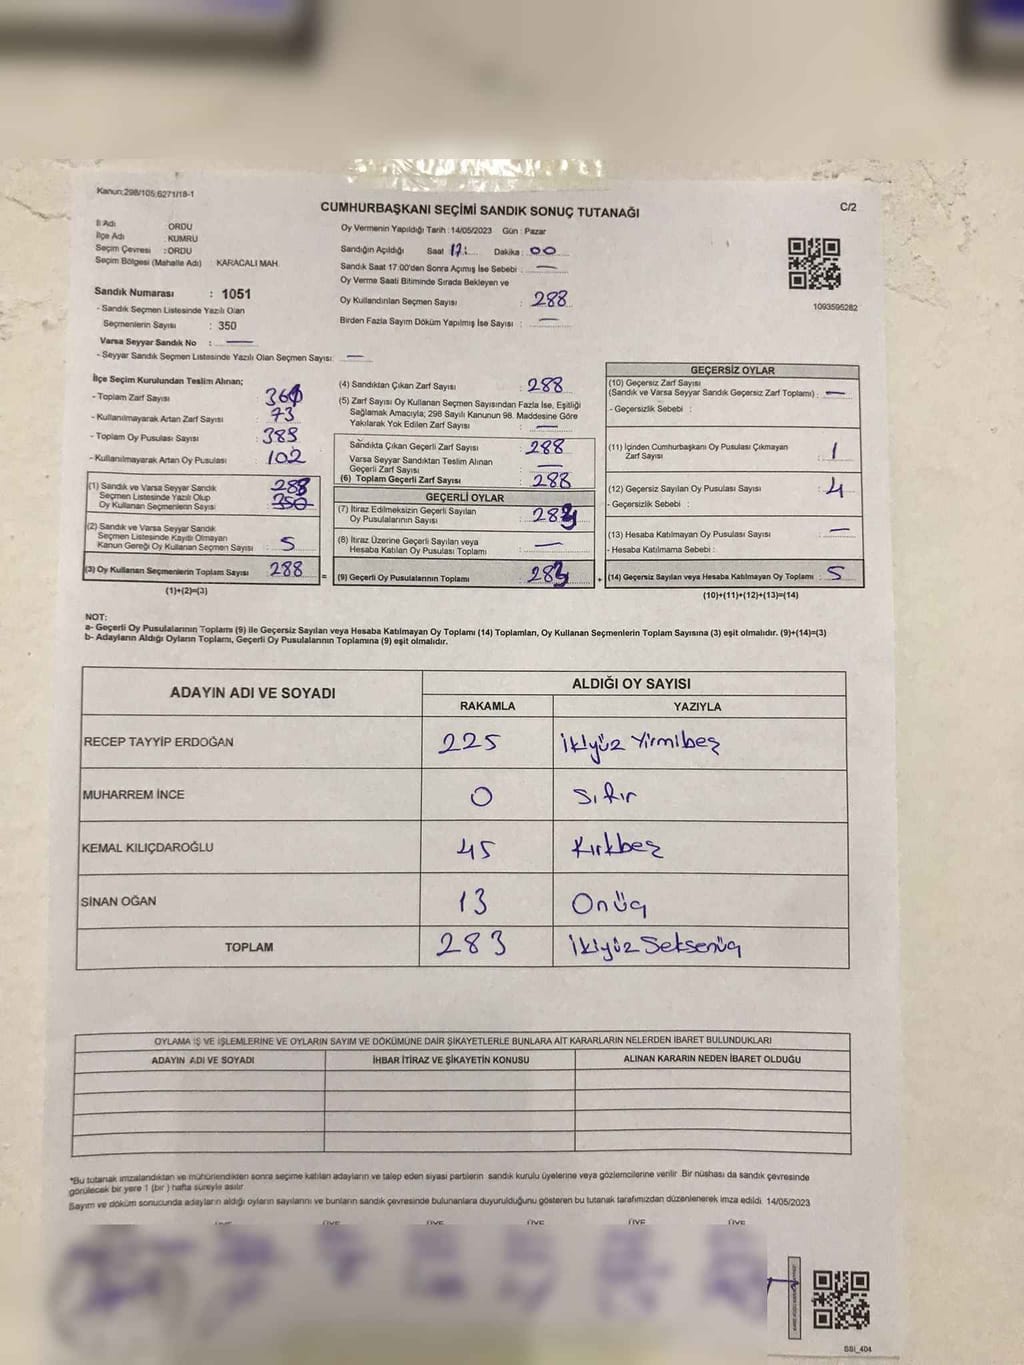 Kanun:298/105;6271/18-1
C/2
CUMHURBAŞKANI SEÇİMİ SANDIK SONUÇ TUTANAĞI
İl Adı ORDU
İlçe Adı : KUMRU
Seçim Çevresi : ORDU
Seçim Bölgesi (Mahalle Adı) KARACALI MAH.
Sandık Numarası : 1051
- Sandık Seçmen Listesinde Yazılı Olan
Seçmenlerin Sayısı : 350
Varsa Seyyar Sandık No : —
- Seyyar Sandık Seçmen Listesinde Yazılı Olan Seçmen Sayısı: —
Oy Vermenin Yapıldığı Tarih : 14/05/2023 Gün : Pazar
Sandığın Açıldığı Saat 17: Dakika : 00
Sandık Saat 17:00'den Sonra Açılmış İse Sebebi : —
Oy Verme Saati Bitiminde Sırada Bekleyen ve
Oy Kullandırılan Seçmen Sayısı : 288
Birden Fazla Sayım Döküm Yapılmış İse Sayısı : —
1093595282
İlçe Seçim Kurulundan Teslim Alınan;
- Toplam Zarf Sayısı :
- Kullanılmayarak Artan Zarf Sayısı : 73
- Toplam Oy Pusulası Sayısı : 385
- Kullanılmayarak Artan Oy Pusulası : 102
(1) Sandık ve Varsa Seyyar Sandık
Seçmen Listesinde Yazılı Olup
Oy Kullanan Seçmenlerin Sayısı 350
(2) Sandık ve Varsa Seyyar Sandık
Seçmen Listesinde Kaydı Olmayan
Kanun Gereği Oy Kullanan Seçmen Sayısı : 5
(3) Oy Kullanan Seçmenlerin Toplam Sayısı 288
(1)+(2)=(3)
=
(4) Sandıktan Çıkan Zarf Sayısı : 288
(5) Zarf Sayısı Oy Kullanan Seçmen Sayısından Fazla İse, Eşitliği
Sağlamak Amacıyla; 298 Sayılı Kanunun 98. Maddesine Göre
Yakılarak Yok Edilen Zarf Sayısı : —
Sandıkta Çıkan Geçerli Zarf Sayısı : 288
Varsa Seyyar Sandıktan Teslim Alınan
Geçerli Zarf Sayısı : —
(6) Toplam Geçerli Zarf Sayısı : 288
GEÇERLİ OYLAR
(7) İtiraz Edilmeksizin Geçerli Sayılan
Oy Pusulalarının Sayısı : 283
(8) İtiraz Üzerine Geçerli Sayılan veya
Hesaba Katılan Oy Pusulası Toplamı : —
(9) Geçerli Oy Pusulalarının Toplamı : 283
+
GEÇERSİZ OYLAR
(10) Geçersiz Zarf Sayısı
(Sandık ve Varsa Seyyar Sandık Geçersiz Zarf Toplamı) : —
- Geçersizlik Sebebi :
(11) İçinden Cumhurbaşkanı Oy Pusulası Çıkmayan
Zarf Sayısı : 1
(12) Geçersiz Sayılan Oy Pusulası Sayısı : 4
- Geçersizlik Sebebi :
(13) Hesaba Katılmayan Oy Pusulası Sayısı : —
- Hesaba Katılmama Sebebi :
(14) Geçersiz Sayılan veya Hesaba Katılmayan Oy Toplamı : 5
(10)+(11)+(12)+(13)=(14)
NOT:
a- Geçerli Oy Pusulalarının Toplamı (9) ile Geçersiz Sayılan veya Hesaba Katılmayan Oy Toplamı (14) Toplamları, Oy Kullanan Seçmenlerin Toplam Sayısına (3) eşit olmalıdır. (9)+(14)=(3)
b- Adayların Aldığı Oyların Toplamı, Geçerli Oy Pusulalarının Toplamına (9) eşit olmalıdır.
ADAYIN ADI VE SOYADI
ALDIĞI OY SAYISI
RAKAMLA YAZIYLA
RECEP TAYYİP ERDOĞAN 225 İkiyüz Yirmibeş
MUHARREM İNCE 0 Sıfır
KEMAL KILIÇDAROĞLU 45 Kırkbeş
SİNAN OĞAN 13 Onüç
TOPLAM 283 İkiyüz Seksenüç
OYLAMA İŞ VE İŞLEMLERİNE VE OYLARIN SAYIM VE DÖKÜMÜNE DAİR ŞİKAYETLERLE BUNLARA AİT KARARLARIN NELERDEN İBARET BULUNDUKLARI
ADAYIN ADI VE SOYADI İHBAR İTİRAZ VE ŞİKAYETİN KONUSU ALINAN KARARIN NEDEN İBARET OLDUĞU
*Bu tutanak imzalandıktan ve mühürlendikten sonra seçime katılan adayların ve talep eden siyasi partilerin sandık kurulu üyelerine veya gözlemcilerine verilir. Bir nüshası da sandık çevresinde
görülecek bir yere 1 (bir) hafta süreyle asılır.
Sayım ve döküm sonucunda adayların aldığı oyların sayılarını ve bunların sandık çevresinde bulunanlara duyurulduğunu gösteren bu tutanak tarafımızdan düzenlenerek imza edildi. 14/05/2023
ÜYE ÜYE ÜYE ÜYE ÜYE
SSI_404